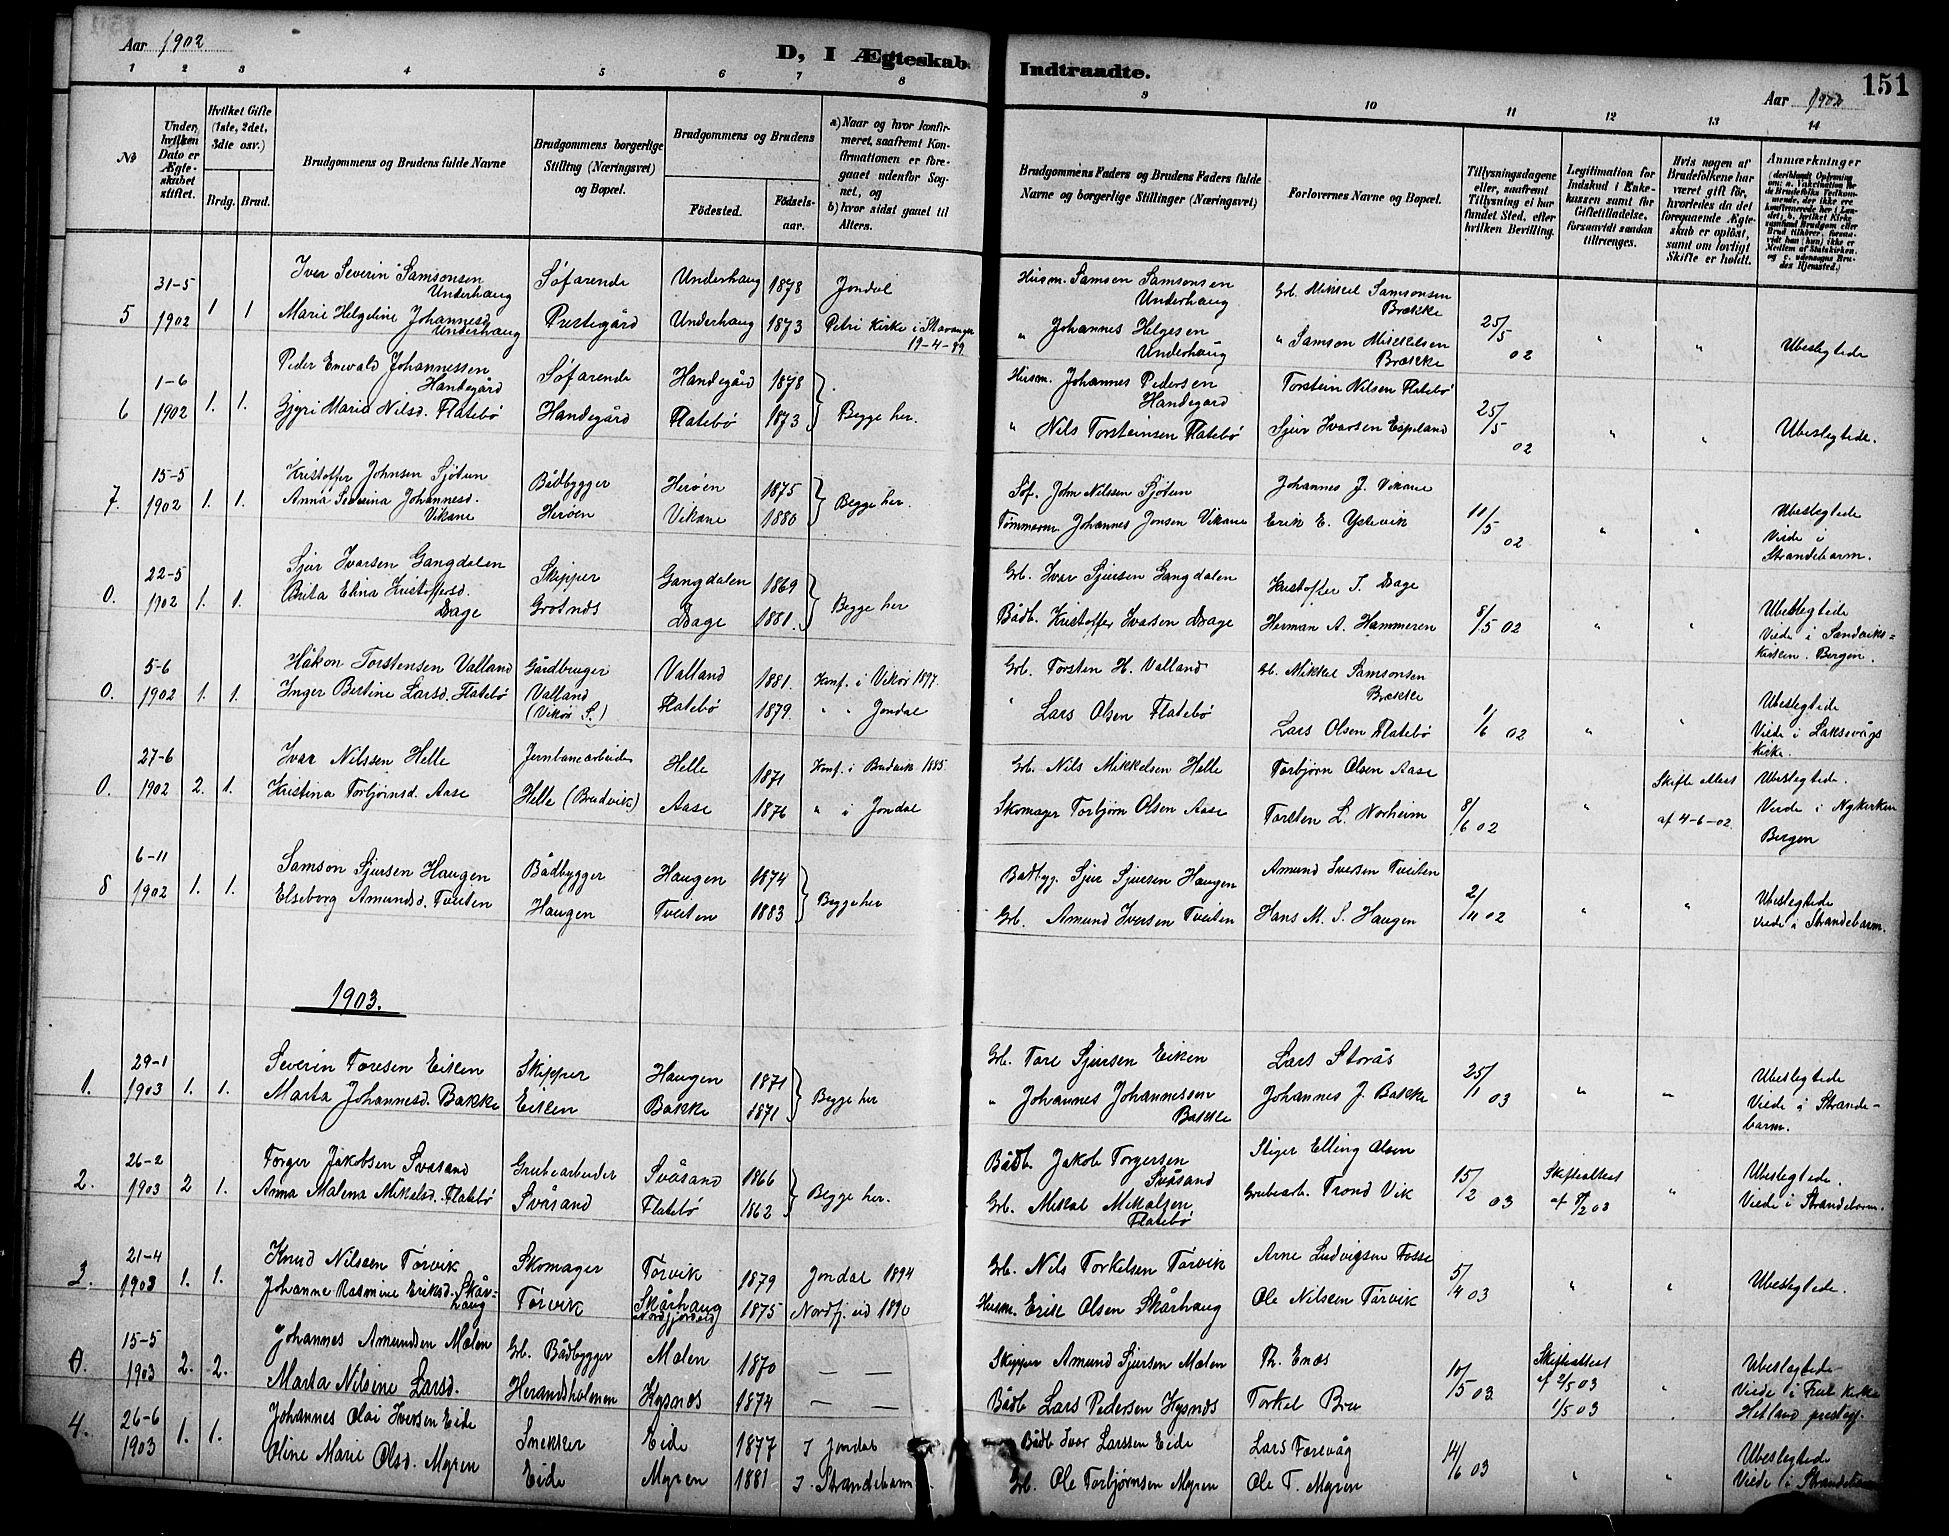 Aar 1902
D, I Ægteskab Indtraadte.
151
Aar 1902
1 2 3 4 5 6 7 8 9 10 11 12 13 14
No
Under hvilken Dato er Ægteskabet stiftet.
Hvilket Gifte (1ste, 2det, 3die osv.)
Brdg. Brud.
Brudgommens og Brudens fulde Navne
Brudgommens borgerlige Stilling (Næringsvei) og Bopæl.
Brudgommens og Brudens
Födested.
Födsels-aar.
a) Naar og hvor konfirmeret, saafremt Konfirmationen er foregaaet udenfor Sognet, og
b) hvor sidst gaaet til Alters.
Brudgommens Faders og Brudens Faders fulde Navne og borgerlige Stillinger (Næringsvei)
Forlovernes Navne og Bopæl.
Tillysningsdagene eller, saafremt Tillysning ei har fundet Sted, efter hvilken Bevilling.
Legitimation for Indskud i Enkekassen samt for Giftetilladelse, forsaavidt saadan tiltrænges.
Hvis nogen af Brudefolkene har været gift för, hvorledes da det foregaaende Ægteskab er oplöst, samt om lovligt Skifte er holdt.
Anmærkninger
5 31-5 1902 1 1
Iver Severin Samsonsen Underhaug
Söfarende Underhaug 1878 Jondal
Husm. Samson Samsonsen Underhaug
Grb. Mikkel Samsonsen Brække
Marie Helgeline Johannesd. Underhaug
Prestegård Underhaug 1873 Petri Kirke i Stavanger 19-4-89
" Johannes Helgesen Underhaug
" Samson Mikkelsen Brække
25/5 02 " " Ubeslegtede
6 1-6 1902 1. 1.
Peder Enevald Johannessen Handegård
Söfarende Handegård 1878
Husm. Johannes Pedersen Handegård
Torstein Nilsen Flatebö
Gjyri Maria Nilsd. Flatebö
Handegård Flatebö 1873 Begge her.
" Nils Torsteinsen Flatebö
Sjur Ivarsen Espeland
25/5 02 " " Ubeslegtede.
7. 15-5 1902 1. 1.
Kristoffer Johnsen Sjötun
Bådbygger Heröen 1875
Söf. John Nilssen Sjötun
Johannes J. Vikane
Anna Severina Johannesd. Vikane
Heröen Vikane 1880 Begge her.
Tömmerm. Johannes Jonsen Vikane
Erik E. Ystevik
11/5 02 " " Ubeslegtede Viede i Strandebarm.
0. 22-5 1902 1. 1.
Sjur Ivarsen Gangdalen
Skipper Gangdalen 1869
Grb. Ivar Sjursen Gangdalen
Kristoffer I. Drage
Brita Elina Kristoffersd. Drage
Grotnes Drage 1881. Begge her
Bådb. Kristoffer Ivarsen Drage
Herman A. Hammeren
8/5 02 " " Ubeslegtede Viede i Sandvikskirken. Bergen.
0. 5-6 1902 1. 1.
Håkon Torstensen Valland
Gårdbruger Valland 1881. Konf. i Vikör 1897.
Grb. Torsten H. Valland
Grb. Mikkel Samsonsen Brække
Inger Bertine Larsd. Flatebö
Valland (Vikör S.) Flatebö 1879. " " Jondal
" Lars Olsen Flatebö
Lars Olsen Flatebö
1/6 02 " " Ubeslegtede Viede i Laksevågs Kirke.
0. 27-6 1902 2. 1.
Ivar Nilssen Helle
Jernbanearbeider Helle 1871 Konf. i Brudvik 1885.
Grb. Nils Mikkelsen Helle
Torbjörn Olsen Aase
Kristina Torbjörnsd. Aase
Helle (Brudvik) Aase 1876 " i Jondal
Skomager Torbjörn Olsen Aase
Torsten L. Norheim
8/6 02 " Skifte Attest af 4-6-02. Ubeslegtede. Viede i Nykirken Bergen
8 6-11 1902 1. 1.
Samson Sjursen Haugen
Bådbygger Haugen 1874
Bådbyg. Sjur Sjursen Haugen
Amund Iversen Tveiten
Elseborg Amundsd. Tveiten
Haugen Tveiten 1883 Begge her
Grb. Amund Iversen Tveiten
Hans M. S. Haugen
2/11 02 " " Ubeslegtede Viede i Strandebarm.
1903.
1. 29-1 1903 1. 1.
Severin Toresen Eiken
Skipper Haugen 1871
Grb. Tore Sjursen Eiken
Lars Storås
Marta Johannesd. Bakke
Eiken Bakke 1871 Begge her
" Johannes Johannessen Bakke
Johannes J. Bakke
25/1 03 " " Ubeslegtede Viede i Strandebarm.
2. 26-2 1903 2 1.
Torger Jakobsen Svåsand
Grubearbeider Svåsand 1866
Bådb. Jakob Torgersen Svåsand
Stiger Elling Olsen
Anna Malena Mikalsd. Flatebö
Svåsand Flatebö 1862 Begge her.
Grb. Mikal Mikalsen Flatebö
Grubearb. Trond Vik
15/2 03 Skifteattest af 9/2 03 " Ubeslegtede. Viede i Strandebarm.
3. 21-4 1903 1. 1.
Knud Nilsen Törvik
Skomager Törvik 1879 Jondal 1894
Grb. Nils Torkelsen Törvik
Arne Ludvigsen Fosse
Johanne Rasmine Eriksd. Skårhaug
Törvik Skårhaug (Nordfjordeid) 1875 Nordfj.eid 1890
Husm. Erik Olsen Skårhaug
Ole Nilsen Törvik
5/4 03 " " Ubeslegtede.
0. 15-5 1903 2. 2.
Johannes Amundsen Molen
Grb. Bådbygger Molen 1870 —
Skipper Amund Sjursen Molen
Th. Enæs
Marta Nilsine Larsd.
Herandsholmen Kysnes 1874 —
Bådb. Lars Pedersen Kysnæs
Torkel Bru
10/5 03 Skifteattest af 2/5 03 1/5 03 " Ubeslegtede Viede i Frue Kirke Hetland prestegj.
4. 26-6 1903 1. 1.
Johannes Olai Iversen Eide
Snekker Eide 1877 I Jondal
Bådb. Ivar Larssen Eide
Lars Torevåg
Oline Marie Olsd. Myren
Eide Myren 1881 I Strandebarm
Grb. Ole Torbjörnsen Myren
Ole T. Myren
14/6 03 " " Ubeslegtede Viede i Strandebarm